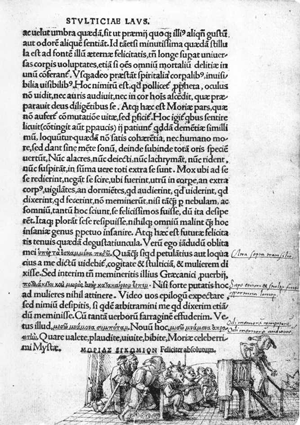 STVLTICIAE LAVS.
ac uelut umbra quædā, sit ut præmij quoq; illi⁹ aliqñ gustū
aut odorē aliquē sentiāt. Id tāetsi minutissima quædā stillu
la est ad fontē illū æternæ felicitatis, tñ longe supat uniuer-
sas corpis uoluptates, etiā si oēs omniū mortaliū delitiæ in
unū coferant᷑. Vsqadeo præstāt spiritalia corpalib⁹, inuisi-
bilia uisibilib⁹. Hoc nimirū est, qđ pollicet᷑ ppheta, oculus
nō uidit, nec auris audiuit, nec in cor hoīs ascēdit, quæ præ-
parauit deus diligentibus se. Atq; hæc est Moriæ pars, quæ
nō aufert᷑ cōmutatiōe uitæ, sed pficit᷑. Hoc igit᷑ qbus sentire
licuit (cōtingit aūt ppaucis) ij patiunt᷑ qddā demētiæ simili
mū, loquunt᷑ quædā nō satis cohærētia, nec humano mo-
re, sed dant sine mēte sonū, deinde subinde totā oris speciē
uertūt, Nūc alacres, nūc deiecti, nūc lachrymāt, nūc rident,
nūc suspirāt, in sūma uere toti extra se sunt. Mox ubi ad se
se redierint, negāt se scire, ubi fuerint, utrū in corpe, an extra
corp⁹, uigilātes, an dormiētes, qd audierint, qd uiderint, qd
dixerint, qd fecerint, nō meminerūt, nisi tāq p nebulam, ac
somniū, tantū hoc sciunt, se felicissimos fuisse, dū ita desipe
rent. Itaq plorāt sese resipuisse, nihilq omniū malint q̄ hoc
insaniæ genus ppetuo insanire. Atq; hæc est futuræ felicita
tis tenuis quædā degustatiuncula. Verū ego iādudū oblita
mei ὑπὲρ τὰ ἐσκαμμένα πηδῶ. Quāq si qd petulātius aut loqua
cius a me dictū uidebit᷑, cogitate & stulticiā, & mulierem di-
xisse. Sed interim tñ memineritis illius Græcanici puerbij,
πολλάκι τοι καὶ μωρὸς ἀνὴρ κατακαίριον εἶπεν. Nisi forte putatis hoc
ad mulieres nihil attinere. Video uos epilogū expectare,
sed nimiū desipitis, si qdē arbitramini me qd dixerim etiā
dū meminisse, Cū tantā uerborū farraginē effuderim. Ve-
tus illud, μισῶ μνάμονα συμπόταν. Nouū hoc, μισῶ μνάμονα ἀκροα-
τήν. Quare ualete, plaudite, uiuite, bibite, Moriæ celeberri
mi Mystæ.
ΜΩΡΙΑΣ ΕΓΚΩΜΙΟΝ Feliciter absolutum.